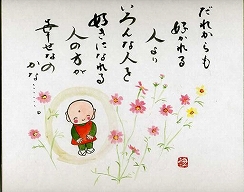 だれからも
好かれる
人より
いろんな人を
好きになれる
人の方が
幸せなの
かな……